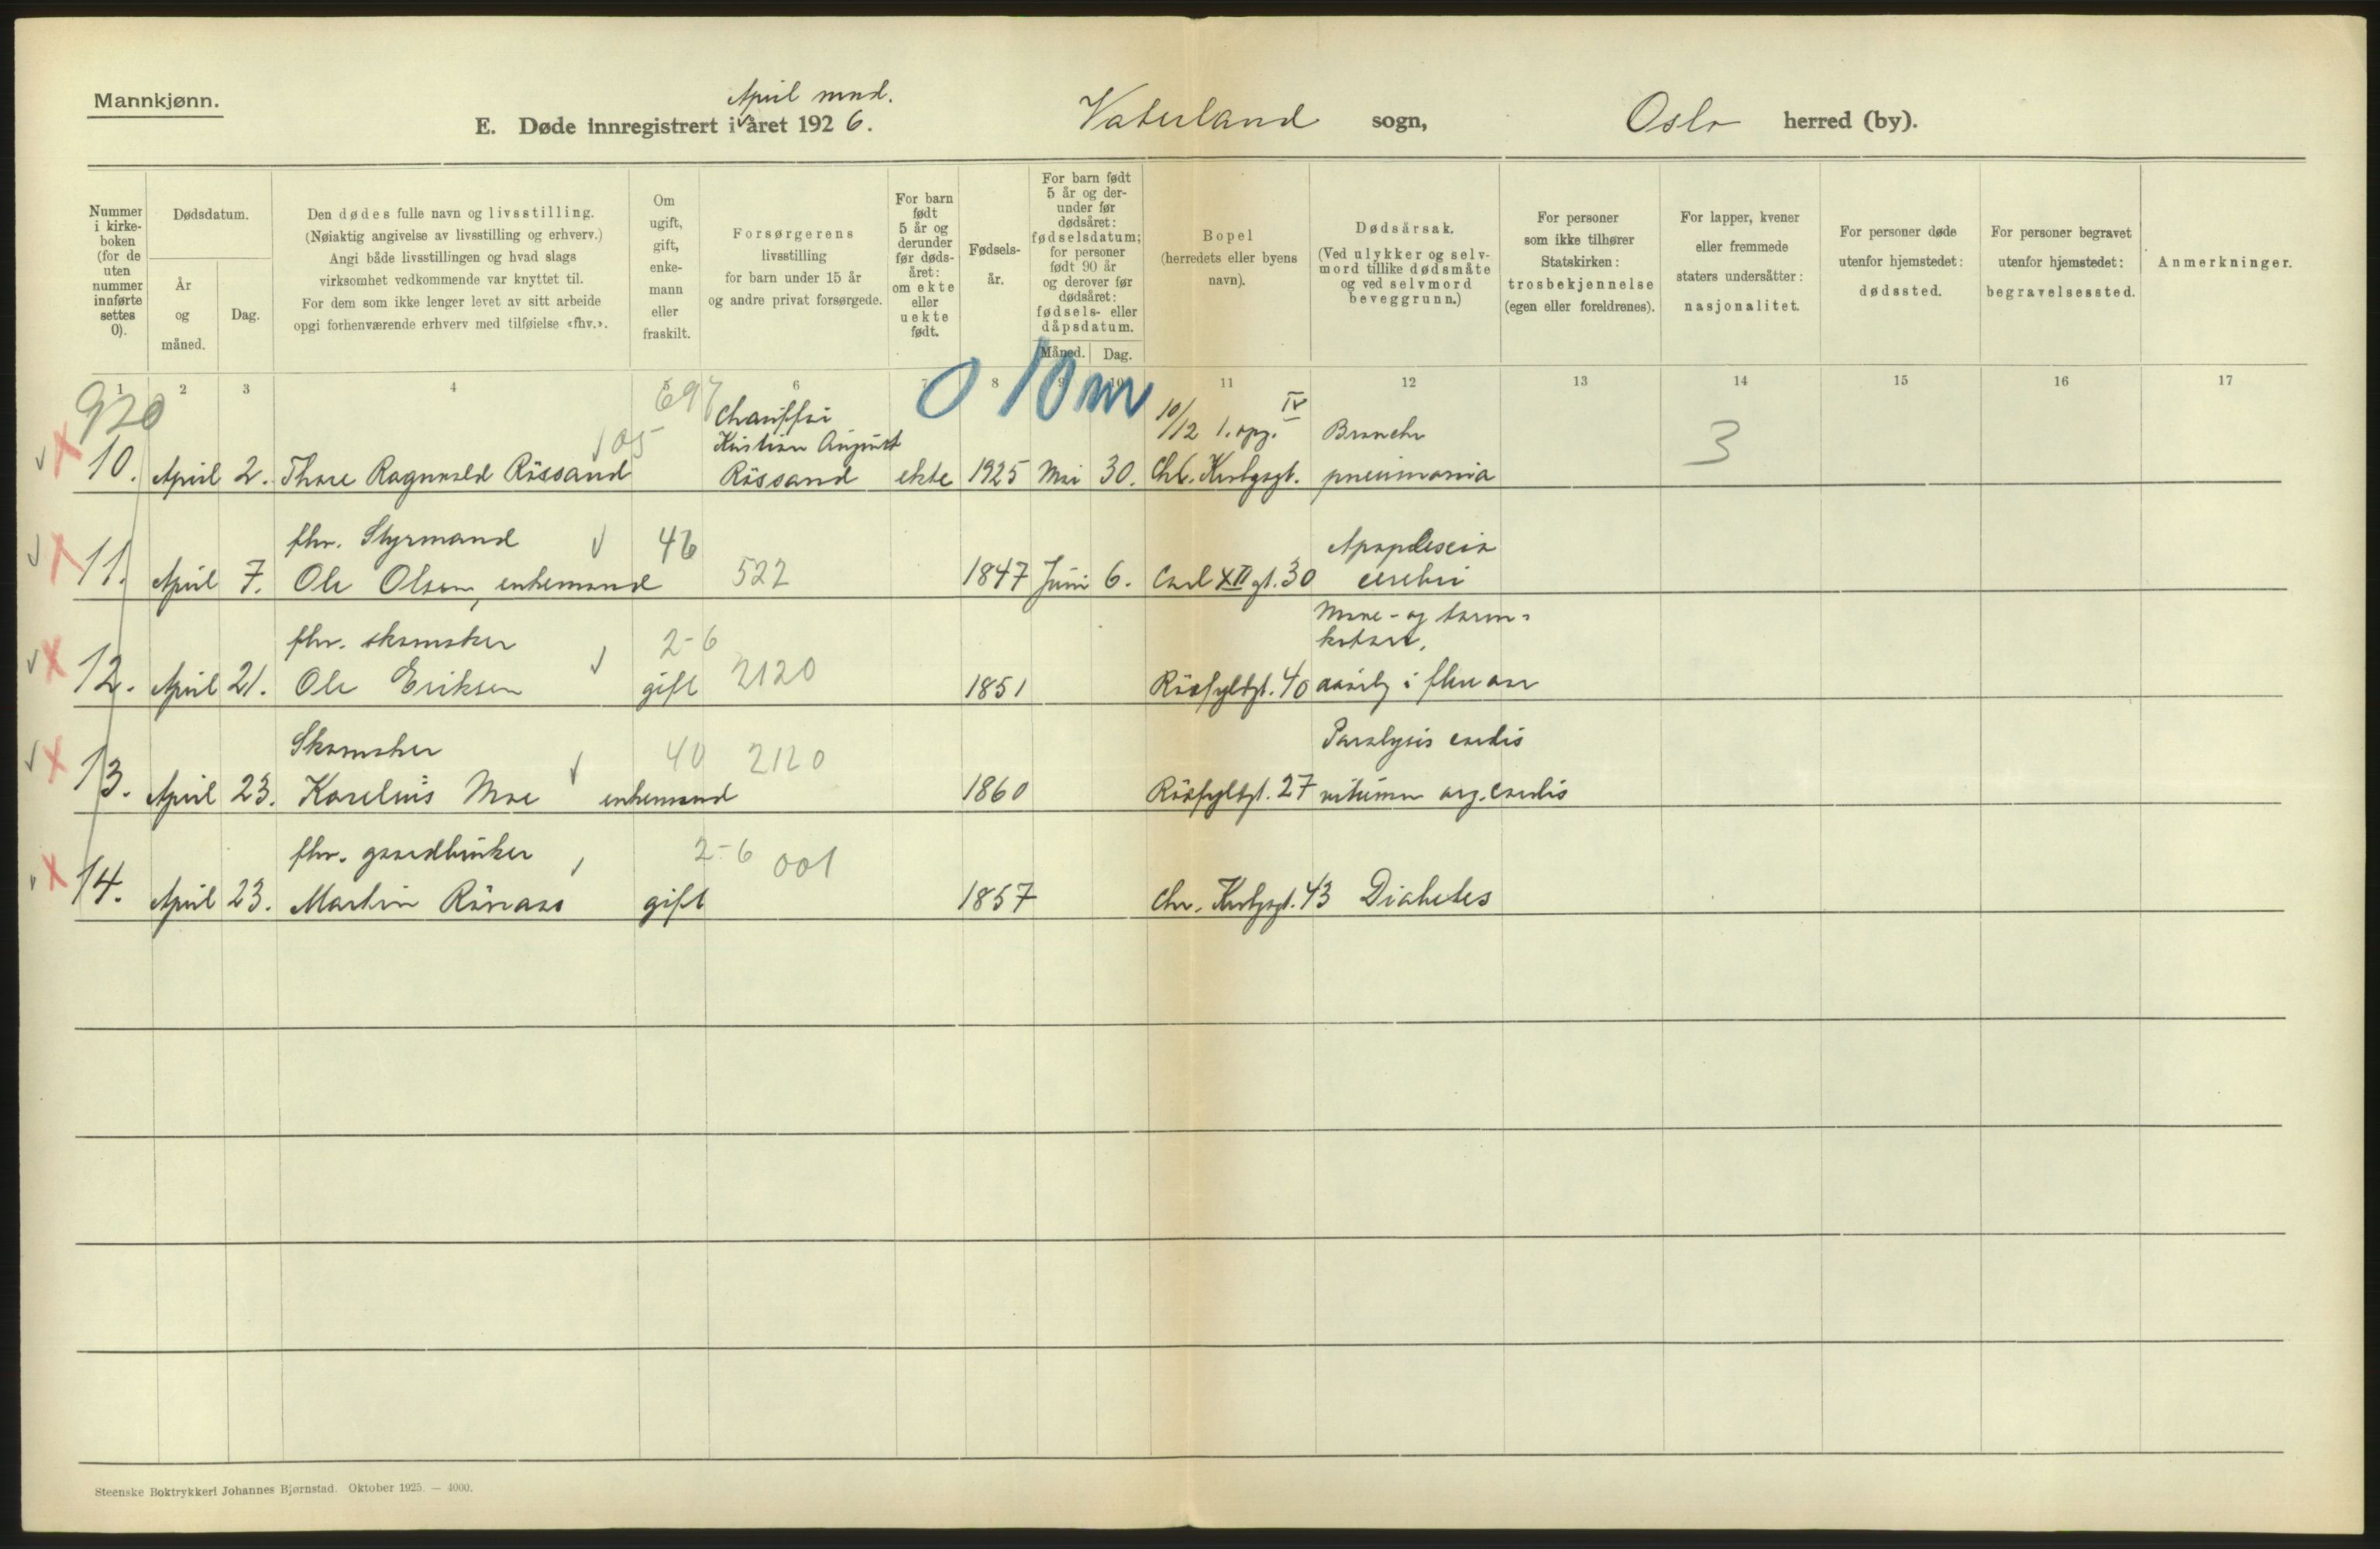 Mannkjønn.
April mnd.
E. Døde innregistrert i året 1926.
Vaterland sogn,
Oslo herred (by).
Nummer i kirke- boken (for de uten nummer innførte settes 0).
Dødsdatum.
År og måned.
Dag.
Den dødes fulle navn og livsstilling.
(Nøiaktig angivelse av livsstilling og erhverv.)
Angi både livsstillingen og hvad slags
virksomhet vedkommende var knyttet til.
For dem som ikke lenger levet av sitt arbeide
opgi forhenværende erhverv med tilføielse «fhv.».
Om ugift, gift, enke- mann eller fraskilt.
Forsørgerens
livsstilling
for barn under 15 år
og andre privat forsørgede.
For barn født 5 år og derunder før døds- året: om ekte eller uekte født.
Fødsels- år.
For barn født 5 år og der- under før dødsåret: fødselsdatum; for personer født 90 år og derover før dødsåret: fødsels- eller dåpsdatum.
Måned. Dag.
Bopel
(herredets eller byens
navn).
Dødsårsak.
(Ved ulykker og selv-
mord tillike dødsmåte
og ved selvmord
beveggrunn.)
For personer
som ikke tilhører
Statskirken:
trosbekjennelse
(egen eller foreldrenes).
For lapper, kvener
eller fremmede
staters undersåtter:
nasjonalitet.
For personer døde
utenfor hjemstedet:
dødssted.
For personer begravet
utenfor hjemstedet:
begravelsessted.
Anmerkninger.
1 2 3 4 5 6 7 8 9 10 11 12 13 14 15 16 17
920
697
0 10 m
105
Chauffør
Kristian August
10/12 1. opg. IV
Broncho
3
10. April 2. Thore Ragnvald Røssand Røssand ekte 1925 Mai 30. Chr. Krohgsgt. pneumonia
fhv. Styrmand 46
Apoplexia
11. April 7. Ole Olsen, enkemand 522 1847 Juni 6. Carl XII gt. 30 cerebri
Mave- og tarm-
fhv. skomaker 2-6
katarr,
12. April 21. Ole Eriksen gift 2120 1851 Rødfyldgt. 40 daarlig i flere aar
Skomaker 40 2120
Paralysis cordis
13. April 23. Karelius Moe enkemand 1860 Rødfyldgt. 27 vitium org. cordis
fhv. gaardbruker 2-6 001
14. April 23. Martin Rønaas gift 1857 Chr. Krohgsgt. 43 Diabetes
Steenske Boktrykkeri Johannes Bjørnstad. Oktober 1925. — 4000.